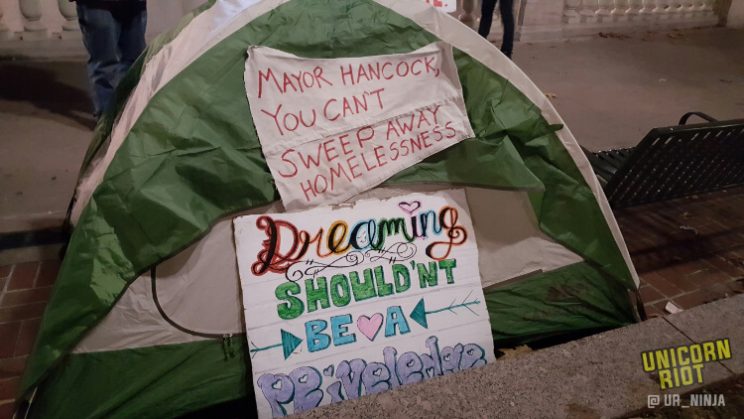 MAYOR HANCOCK,
YOU CAN'T
SWEEP AWAY
HOMELESSNESS
Dreaming
SHOULD'NT
BE A
PRIVELEDGE
UNICORN
RIOT
@ UR_NINJA